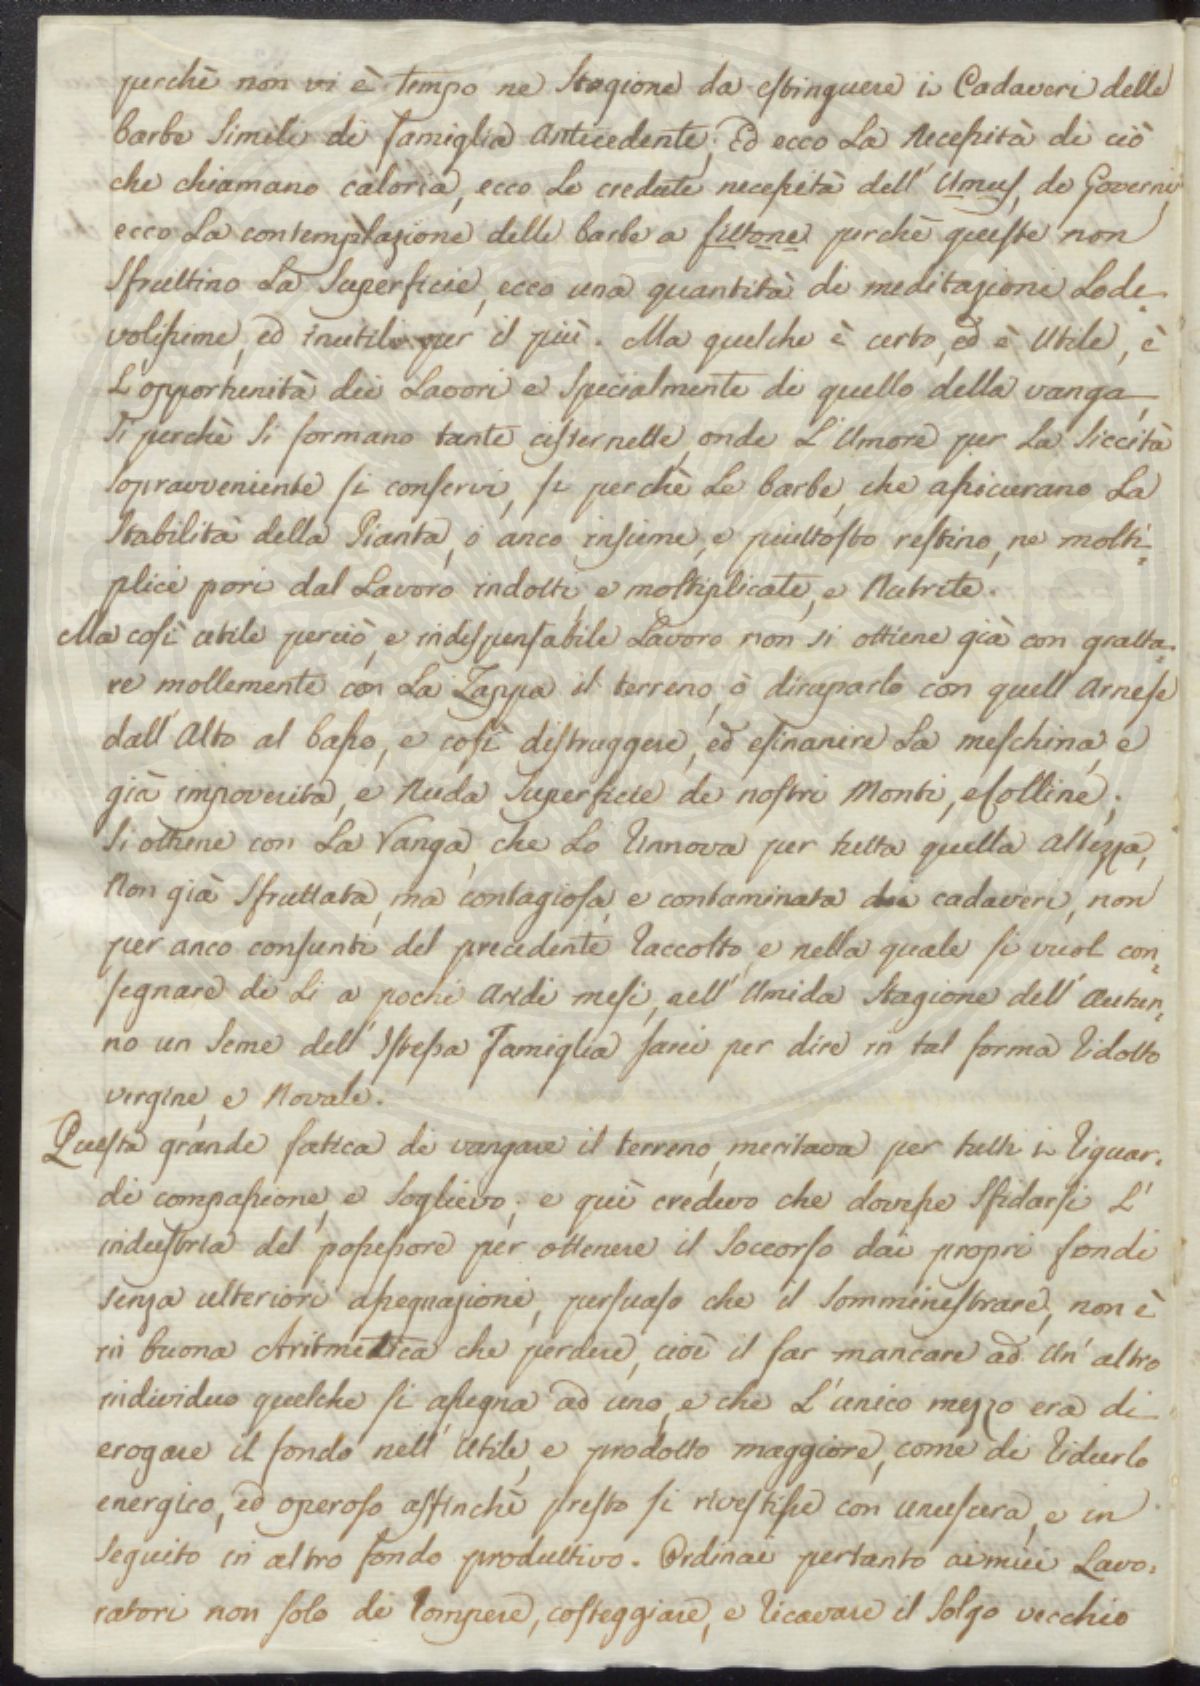 perchè non vi è tempo ne Stagione da estinguere i Cadaveri delle
barbe Simili di famiglia Antecedente; Ed ecco La Necessità di ciò
che chiamano caloria, ecco Le credute necessità dell' Umus, de Governi,
ecco La contemplazione delle barbe a fittone perchè queste non
Sfruttino La Superficie, ecco una quantità di meditazioni Lode-
volissime, ed inutili per il più. Ma quelche è certo, ed è Utile, è
L'opportunità dei Lavori e Specialmente di quello della vanga,
Si perchè Si formano tante cisternelle, onde L'Umore per La Siccità
Sopravveniente si conservi, si perchè Le barbe, che assicurano La
Stabilità della Pianta, o anco insieme, e piuttosto restino, ne molti-
plici pori dal Lavoro indotti, e moltiplicate, e Nutrite.
Ma così utile perciò, e indispensabile Lavoro non si ottiene già con gratta-
re mollemente con La Zappa il terreno, ò diruparlo con quell'Arnese
dall'Alto al basso, e così distruggere, ed esinanire La meschina, e
già impoverita, e Nuda Superficie de nostri Monti, e Colline;
Si ottiene con La Vanga, che Lo Rinnova per tutta quella Altezza,
Non già Sfruttata, ma contagiosa, e contaminata dai cadaveri, non
per anco consunti del precedente Raccolto, e nella quale si vuol con-
segnare di Li a pochi Aridi mesi, nell'Umida Stagione dell'Autun-
no un Seme dell'Istessa Famiglia sarei per dire in tal forma Ridotto
vergine, e Novale.
Questa grande fatica di vangare il terreno, meritava per tutti i Riguar-
di compassione, e Soglievo; e quì credevo che dovesse Sfidarsi L'
industria del possessore per ottenere il Soccorso dai propri fondi
senza ulteriori assegnazioni, persuaso che il Somministrare, non è
in buona Aritmetica che perdere, cioè il far mancare ad Un'altro
individuo quelche si assegna ad uno, e che L'unico mezzo era di
erogare il fondo nell'Utile, e prodotto maggiore, come di Ridurlo
energico, ed operoso affinchè presto si rivestisse con unusura, e in
Seguito in altro fondo produttivo. Ordinai pertanto ai miei Lavo-
ratori non solo di Rompere, costeggiare, e Ricavare il Solgo vecchio